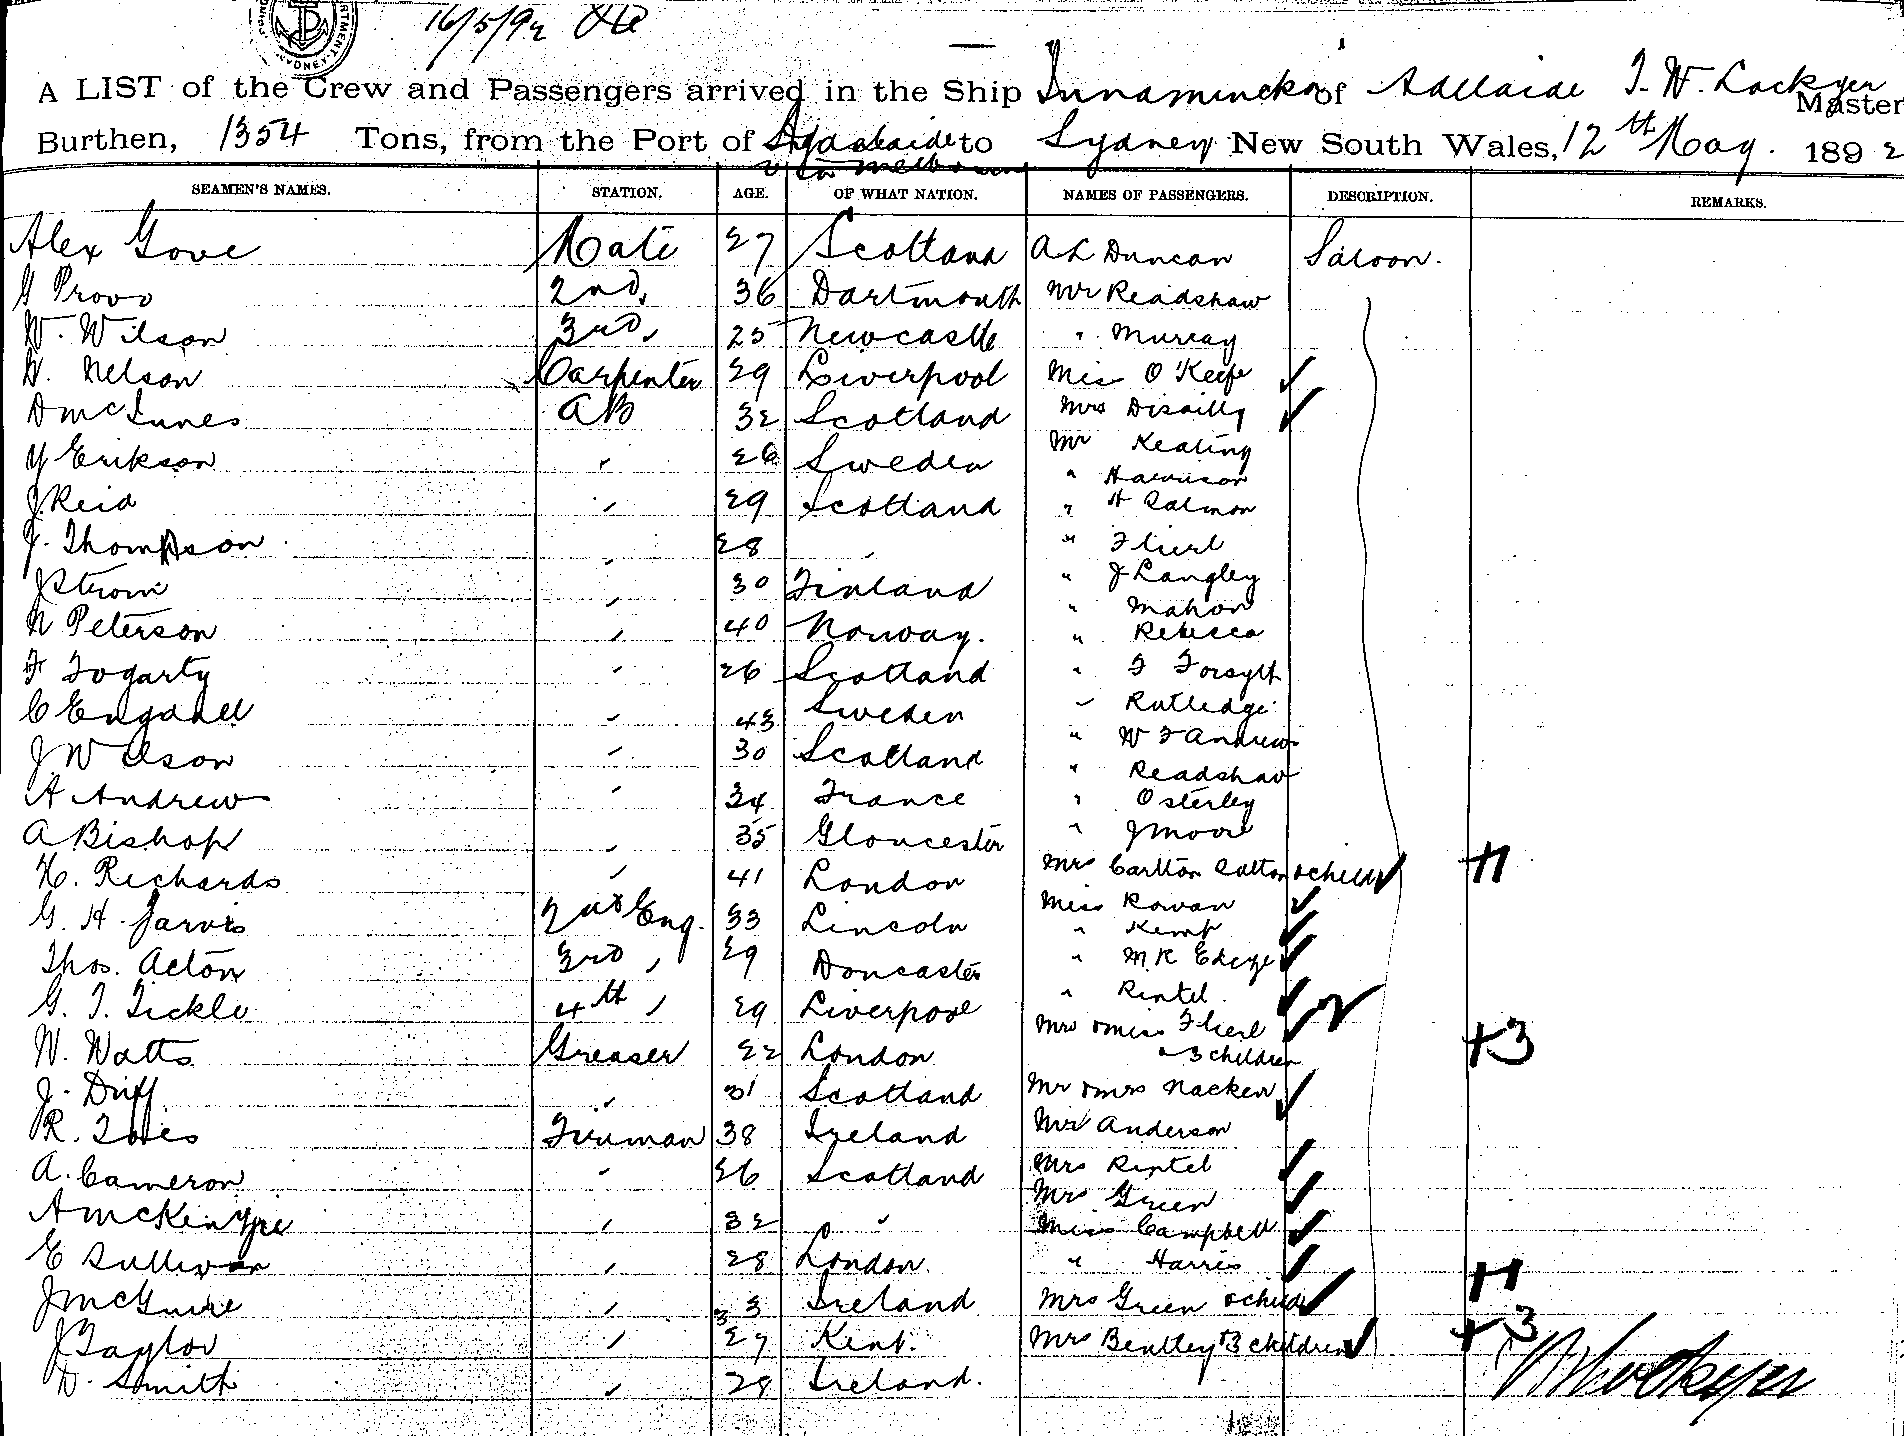 16/5/92
A LIST of the Crew and Passengers arrived in the Ship Innamincka of Adelaide J. W. Lockyer Master
Burthen, 1354 Tons, from the Port of Adelaide to Sydney New South Wales, 12th May. 1892
via Melbourne
SEAMEN'S NAMES. STATION. AGE. OF WHAT NATION. NAMES OF PASSENGERS. DESCRIPTION. REMARKS.
Alex Gove Mate 27 Scotland A L Duncan Saloon.
G Provo 2nd, 36 Dartmouth Mr Readshaw
W. Wilson 3rd, 25 Newcastle " Murray
W. Nelson Carpenter 29 Liverpool Miss O'Keefe ✓
D McInnes AB 32 Scotland Mrs Disailly ✓
Y Erikson " 26 Sweden Mr Keating
" Harrison
J Reid " 29 Scotland " H Salmon
J. Thompson " 28 " " Flierl
J Strom " 30 Finland " J Langley
" Mahon
N Peterson " 40 Norway. " Rebecca
F Fogarty " 26 Scotland " F Forsyth
C Engdahl " 43 Sweden " Rutledge
J Wilson " 30 Scotland " W F Andrews
" Readshaw
A Andrews " 34 France " Osterley
A Bishop " 35 Gloucester " J Moore
H. Richards " 41 London Mrs Carlton Dalton & child ✓ +1
G. H. Jarvis 2nd Eng. 33 Lincoln Miss Rowan ✓
" Kemp ✓
Thos. Acton 3rd " 29 Doncaster " M R ✓
G. T. Tickle 4th " 29 Liverpool " Rintel ✓
Mrs & Miss Flierl ✓
W. Watts Greaser 22 London & 3 children +3
J. Duff " 31 Scotland Mr & Mrs Nacken ✓
R. Fireman 38 Ireland Mr Anderson
A. Cameron " 26 Scotland Mrs Rintel ✓
A McKenzie " 32 " Mrs Green ✓
Miss Campbell ✓
E Sullivan " 28 London. " Harris ✓
J McGuire " 33 Ireland Mrs Green & child ✓ +1
J Taylor " 27 Kent. Mrs Bentley & 3 children ✓ +3
W. Smith " 28 Ireland. Lockyer